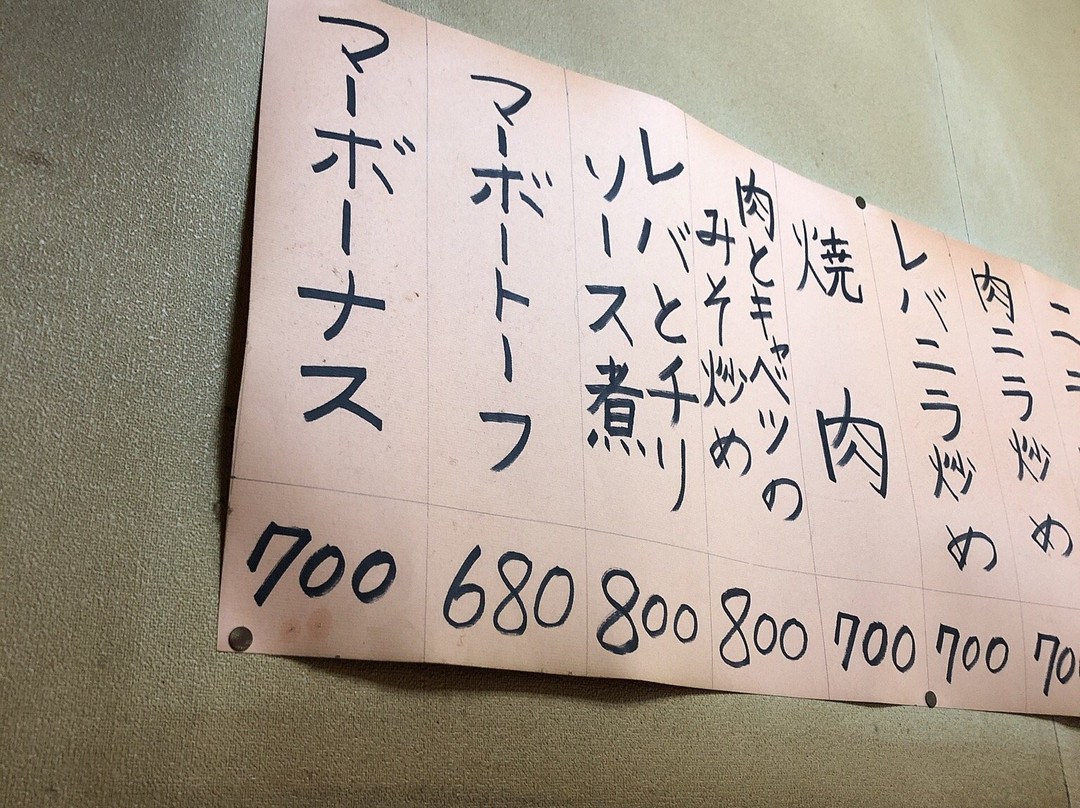 肉ニラ炒め
700
レバニラ炒め
700
焼肉
700
肉とキャベツの
みそ炒め
800
レバとチリ
ソース煮
800
マーボートーフ
680
マーボーナス
700